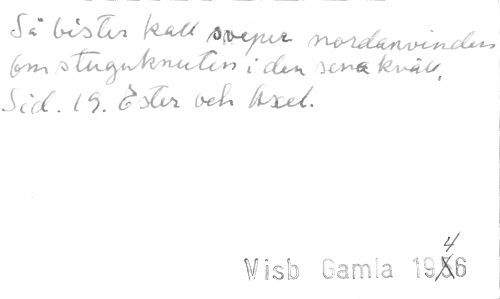 Så bister kall sveper nordanvinden
om stuguknuten i den sena kväll,
Sid. 19. Ester och Axel.
4
Visb Gamla 1956